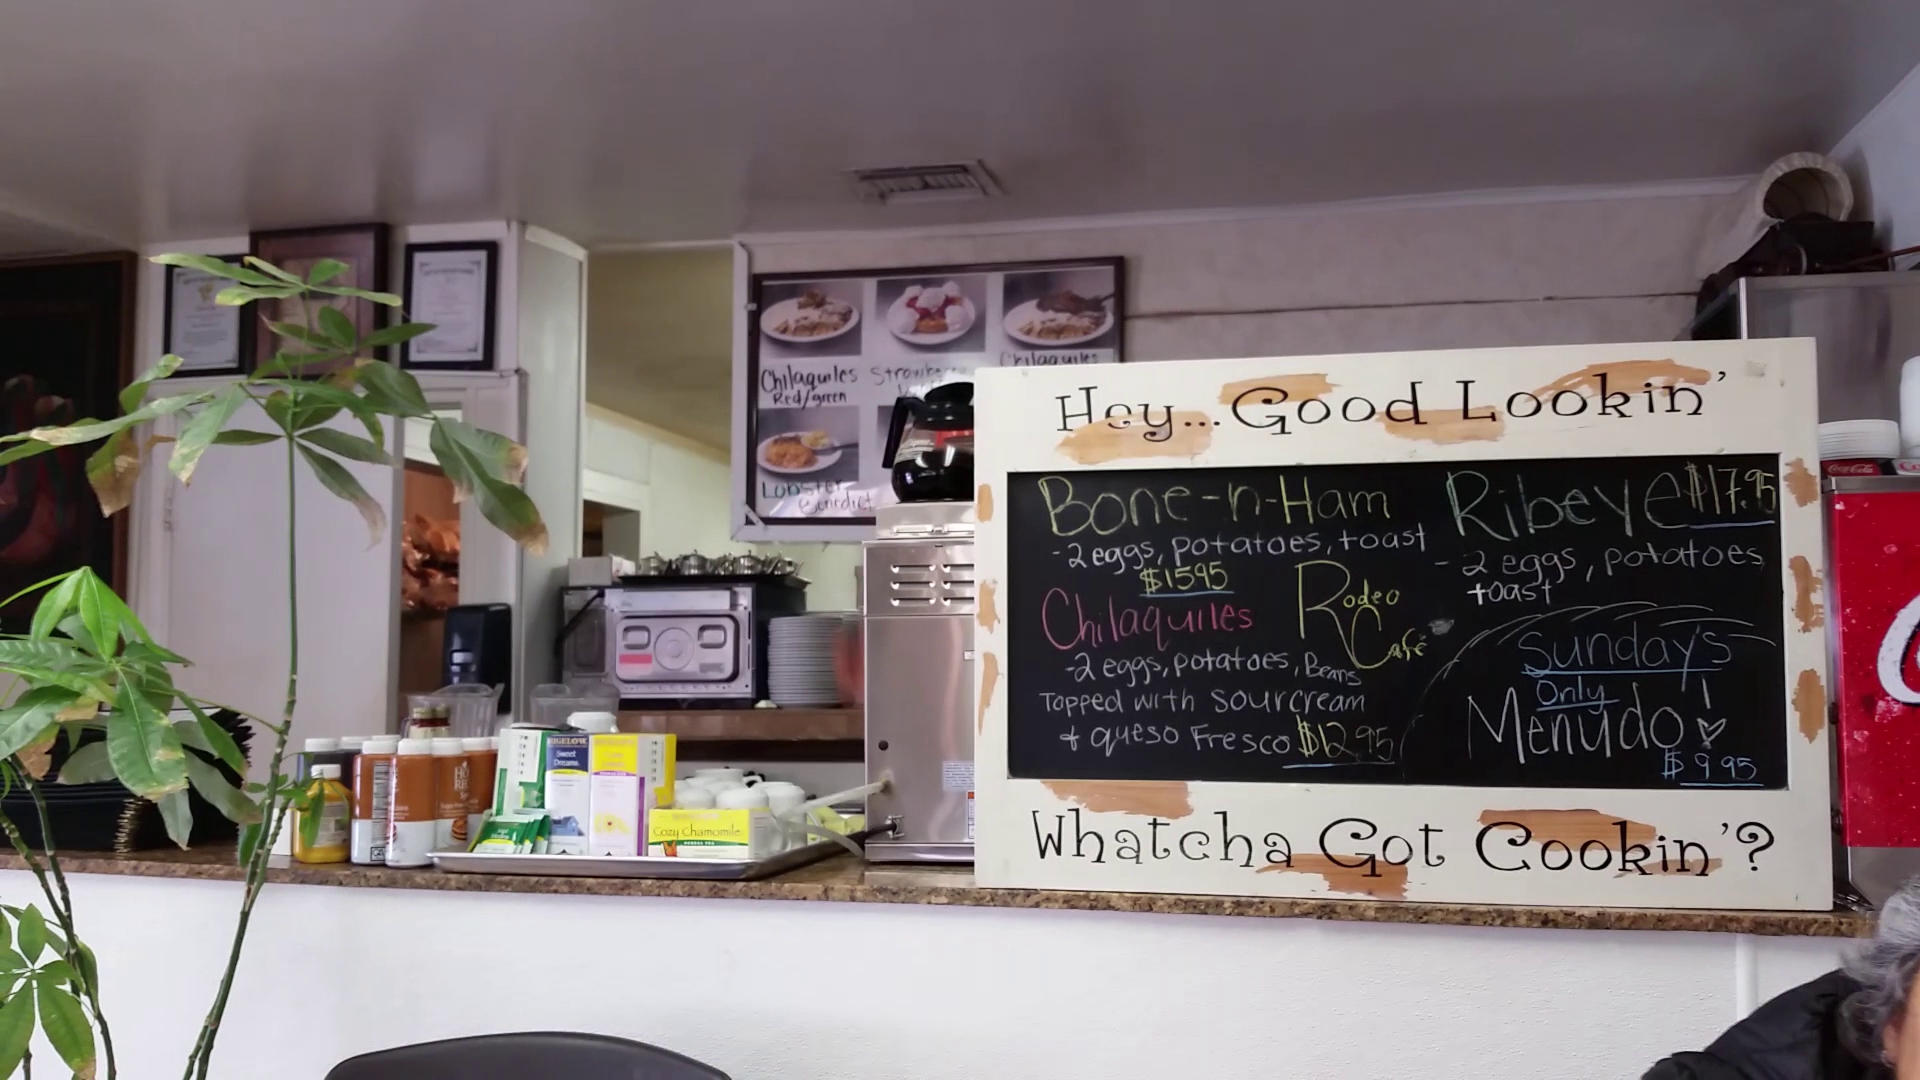 Chilaquiles
Red/green
Chilaquiles
Lobster
Benedict
Hey... Good Lookin'
Bone-n-Ham
-2 eggs, potatoes, toast
$15.95
Chilaquiles
-2 eggs, potatoes, Beans
Topped with sour cream
& queso Fresco $12.95
Rodeo
Café
Ribeye $17.95
- 2 eggs, potatoes
toast
Sundays
Only
Menudo!
$9.95
Whatcha Got Cookin'?
BIGELOW
Sweet
Dreams
Cozy Chamomile
HERBAL TEA
Coca-Cola